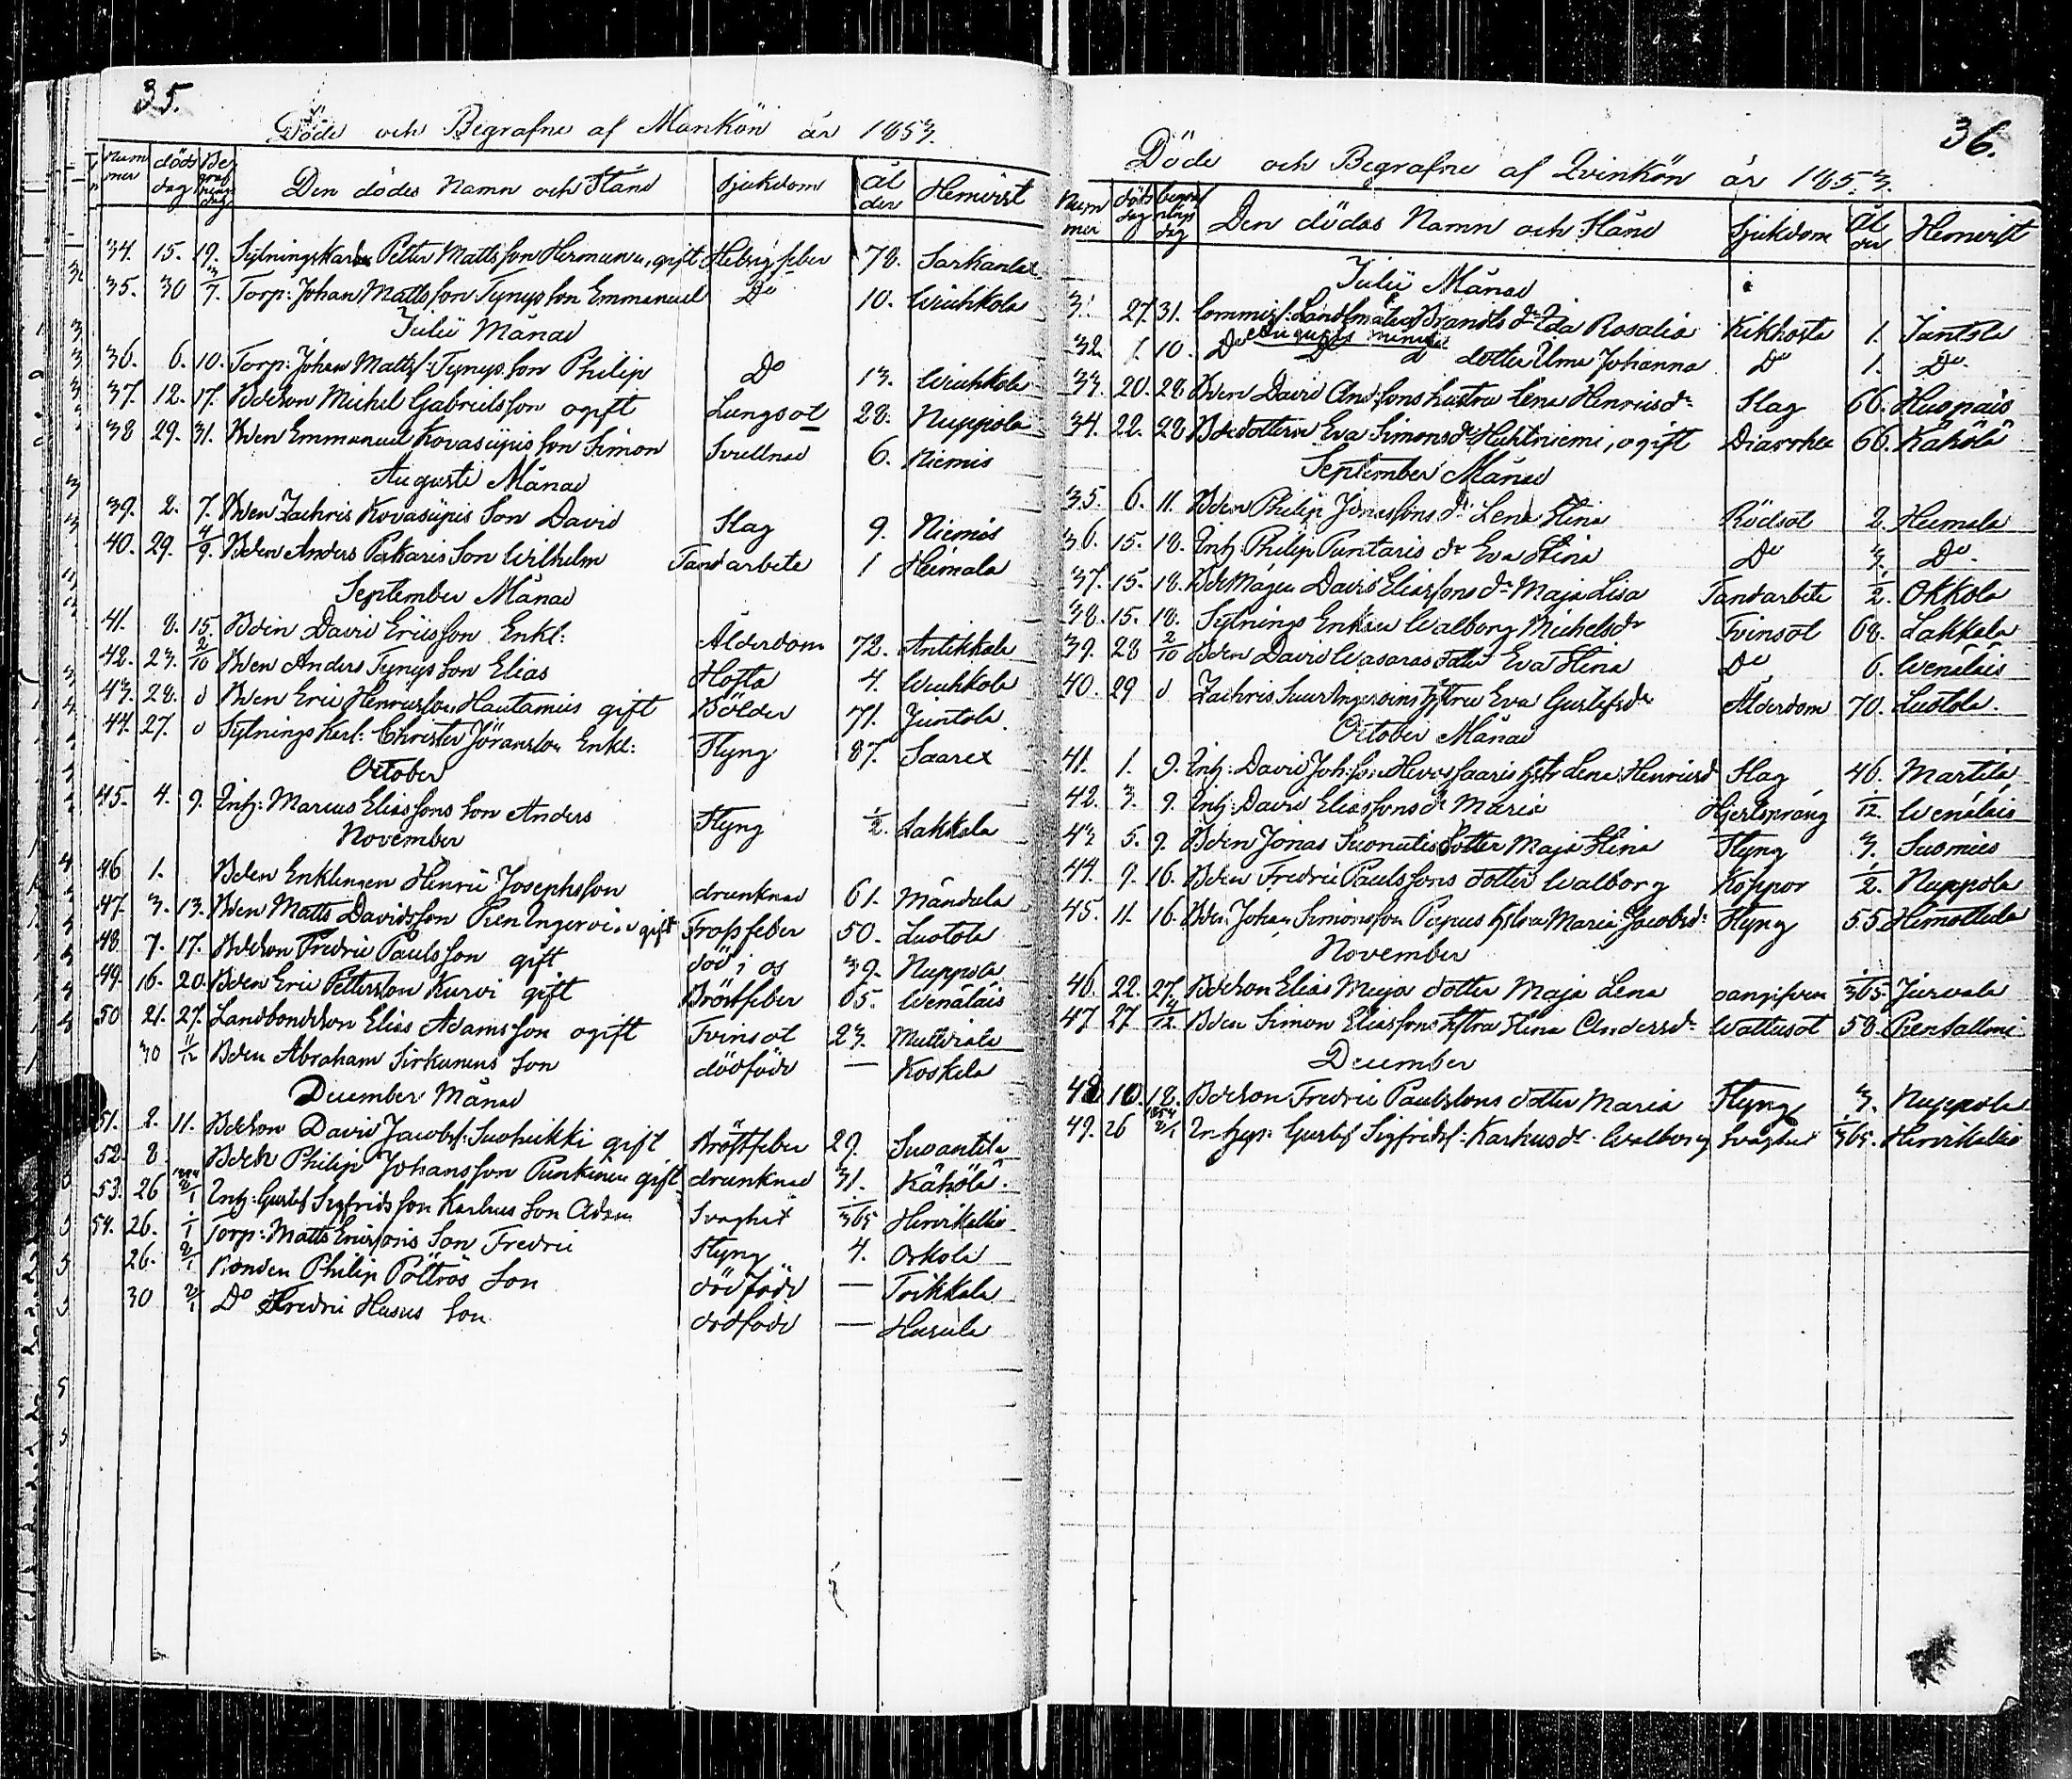 35.
Döde och Begrafne af Mankön år 1853.
Num mer döds dag Be graf nings dag Den dödes Namn och Stånd Sjukdom Ål der Hemvist
34. 15. 19. Sytningskarln Petter Mattsson Hermunen, gift Hetsig feber 78. Sarkanlax
35. 30 3/7. Torp: Johan Mattsson Tynys son Emmanuel Do 10. Wiuhkola
Julii Månad
36. 6. 10. Torp: Johan Matts: Tynys son Philip Do 13. Wiuhkola
37. 12. 17. Bdeson Michel Gabrielsson ogift Lungsot 28. Nuppola
38 29. 31. Bden Emmanuel Kovasiipis son Simon Svullnad 6. Niemis
Augusti Månad
39. 2. 7. Bden Zachris Kovasiipis Son David Slag 9. Niemis
40. 29. 4/9. Bden Anders Pakaris Son Wilhelm Tandarbete 1 Heimala
September Månad
41. 8. 15. Bden David Ericsson Enkl: Ålderdom 72. Antikkala
42. 23. 2/10 Bden Anders Tynys Son Elias Hosta 4. Wiuhkola
43. 28. d Bden Eric Henricsson Hautamies gift Bölder 71. Juntola
44. 27. d Sytnings Karl: Christer Jöransson Enkl: Styng 87. Saarex
October
45. 4. 9. Inh: Marcus Eliassons Son Anders Styng 1/2. Lakkala
November
46 1. Bden Enklingen Henric Josephsson drunknad 61. Mändula
47. 3. 13. Bden Matts Davidsson Pien Ingeroinen gift Frossfeber 50. Luotola
48 7. 17. Bdeson Fredric Paulsson gift död i os 39. Nuppola
49. 16. 20. Bden Eric Pettersson Kurvi gift Bröstfeber 65. Wenäläis
50 21. 27. Landbondeson Elias Adamsson ogift Tvinsot 23. Muttiala
30 4/12 Bden Abraham Sirkunens Son dödfödd — Koskela
December Månad
51. 2. 11. Bdeson David Jacobs: Suoheikki gift Bröstfeber 29. Suoanttila
52. 8 Bden Philip Johansson Punkinen gift drunknad 31. Kähölä.
53. 26 2/1 Inh: Gustaf Sigfridsson Karhus Son Adam Svaghet 1/365 Hirvikallio
54. 26. 1/1 Torp: Matts Ericssons Son Fredric Styng 4. Orkola
26. 2/1 Bonden Philip Pöltrös Son dödfödd — Toikkala
30 2/1 Do Fredric Husus Son dödfödd — Husula
36.
Döde och Begrafne af Qvinkön år 1853.
Num mer döds dag begraf nings dag Den dödas Namn och Stånd Sjukdom Ål der Hemvist
Julii Månad
31 27. 31. Commiss: Landtmätar Brandts dr Ida Rosalia Kikhosta 1. Jäntola
Augusti månad
32. 1. 10. Do Do d dotter Alma Johanna Do 1. Do
33. 20. 28. Bden David Andssons hustru Lena Henricsdr Slag 66. Huopais
34. 22. 28 Bdedottern Eva Simonsdr Huhtniemi, ogift Diarrhea 66. Kähölä
September Månad
35. 6. 11. Bden Philip Jonassons dr Lena Stina Rödsot 2. Heimala
36. 15. 18. Inh: Philip Puntaris dr Eva Stina Do 3. Do
37. 15. 18. Bde Mågen David Eliassons dr Maja Lisa Tandarbete 1/2. Okkola
38. 15. 18. Sytnings Enkan Walborg Michelsdr Tvinsot 68. Lakkala
39. 28 2/10 Bden David Wasaras dotter Eva Stina Do 6. Wenäläis
40. 29 d Zachris Suur Ingeroins hstru Eva Gustafsdr Ålderdom 70. Luotola.
October Månad
41. 1. 9. Inh: David Joh:son Hevossaaris hstr Lena Henricsd Slag 46. Marttila
42. 3. 9. Inh: David Eliassons dr Maria Hjertsprång 1/12. Wenäläis
43 5. 9. Bden Jonas Suonutis Dotter Maja Stina Styng 3. Suomies
44. 9. 16. Bden Fredric Paulssons dotter Walborg Koppor 1/2. Nuppola
45. 11. 16. Bden Johan Simonsson Pupus hstru Maria Jacobsd: Styng 55. Himottula
November
46. 22. 27. Bdeson Elias Muja dotter Maja Lena oangifven 1/365. Jurvala
47 27 4/12 Bden Simon Eliassons hstru Stina Andersdr Wattusot 58. Rentallmi
December
48 10. 18. Bdeson Fredric Paulssons dotter Maria Styng 3. Nuppola
49. 26 1854 2/1 Inhys: Gustaf Sigfrids: Karhus dr Walborg Svaghet 1/365. Hirvikallio